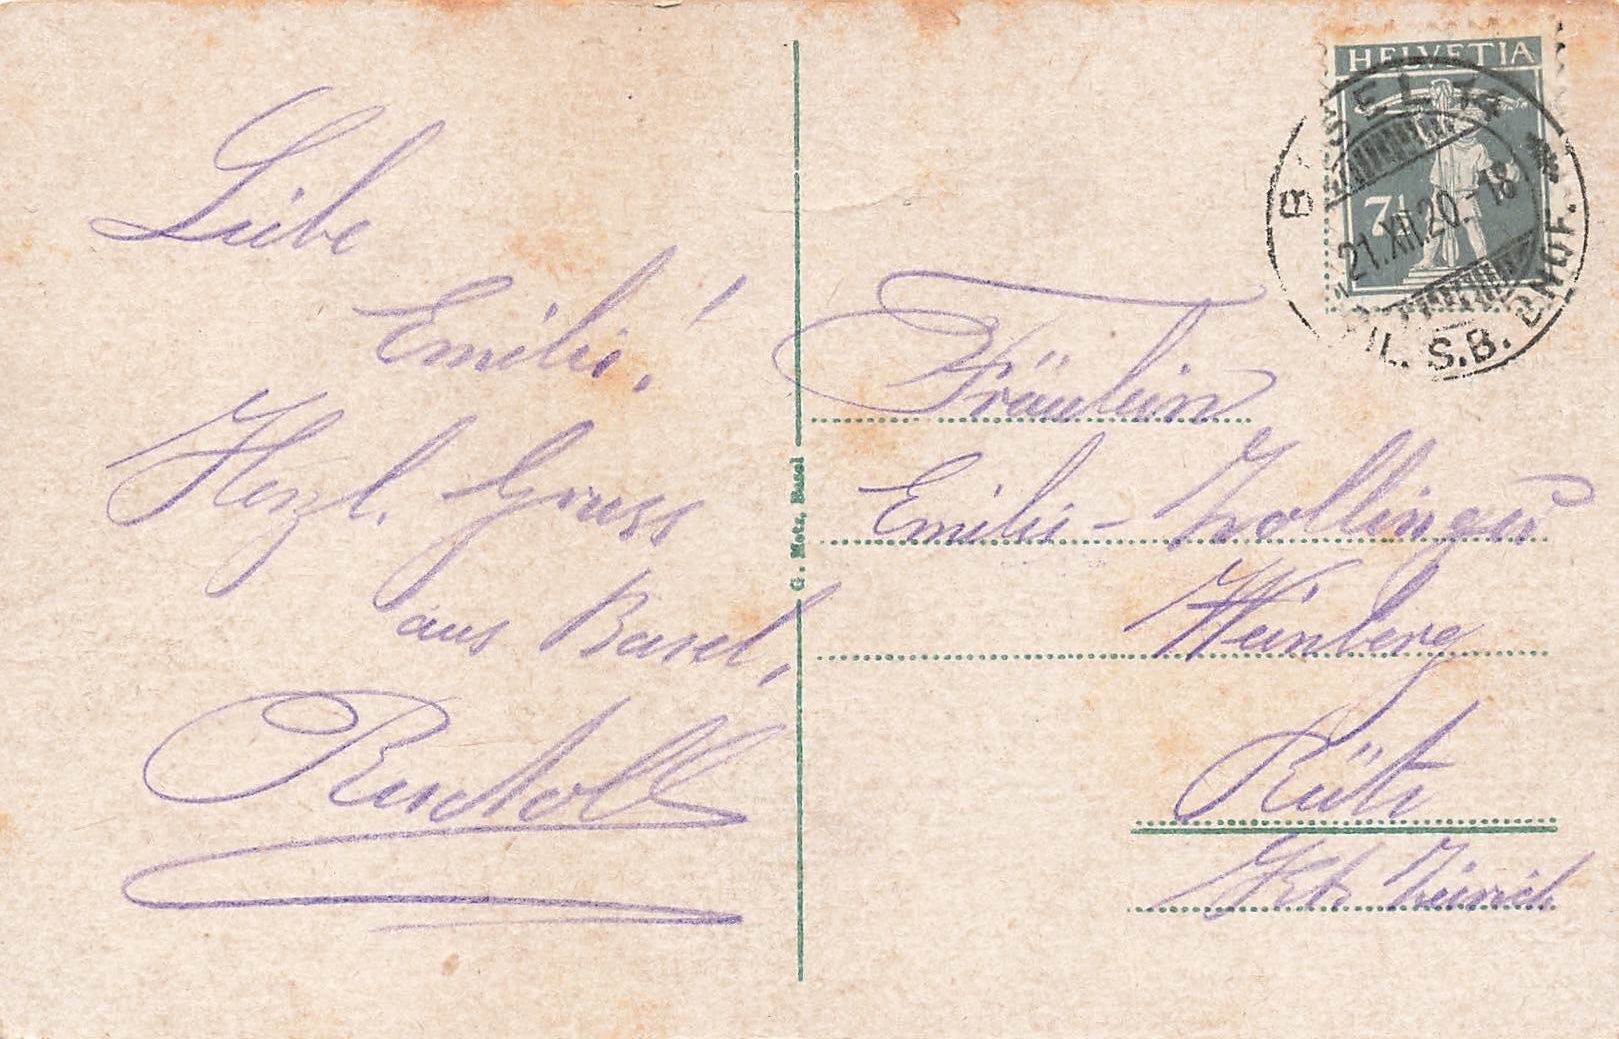 Liebe
Emilie!
Herzl. Gruss
aus Basel,
Rudolf
G. Metz, Basel
HELVETIA
7½
BASEL 14
21.XII.20.-18
FIL. S.B. BNHF.
Fräulein
Emilie-Zollinger
Weinberg
Rüti
Kt. Zürich